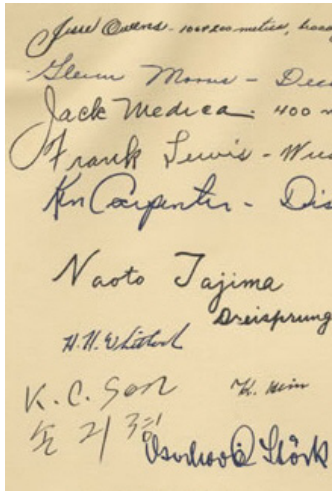 Jesse Owens - 100+200 metres, broad
Glenn Morris - Dec
Jack Medica - 400 m
Frank Lewis -
Ken Carpenter - Dis
Naoto Tajima
Dreisprung
H. H. Whitlock
K. C. Son K.
손 기
Stöck